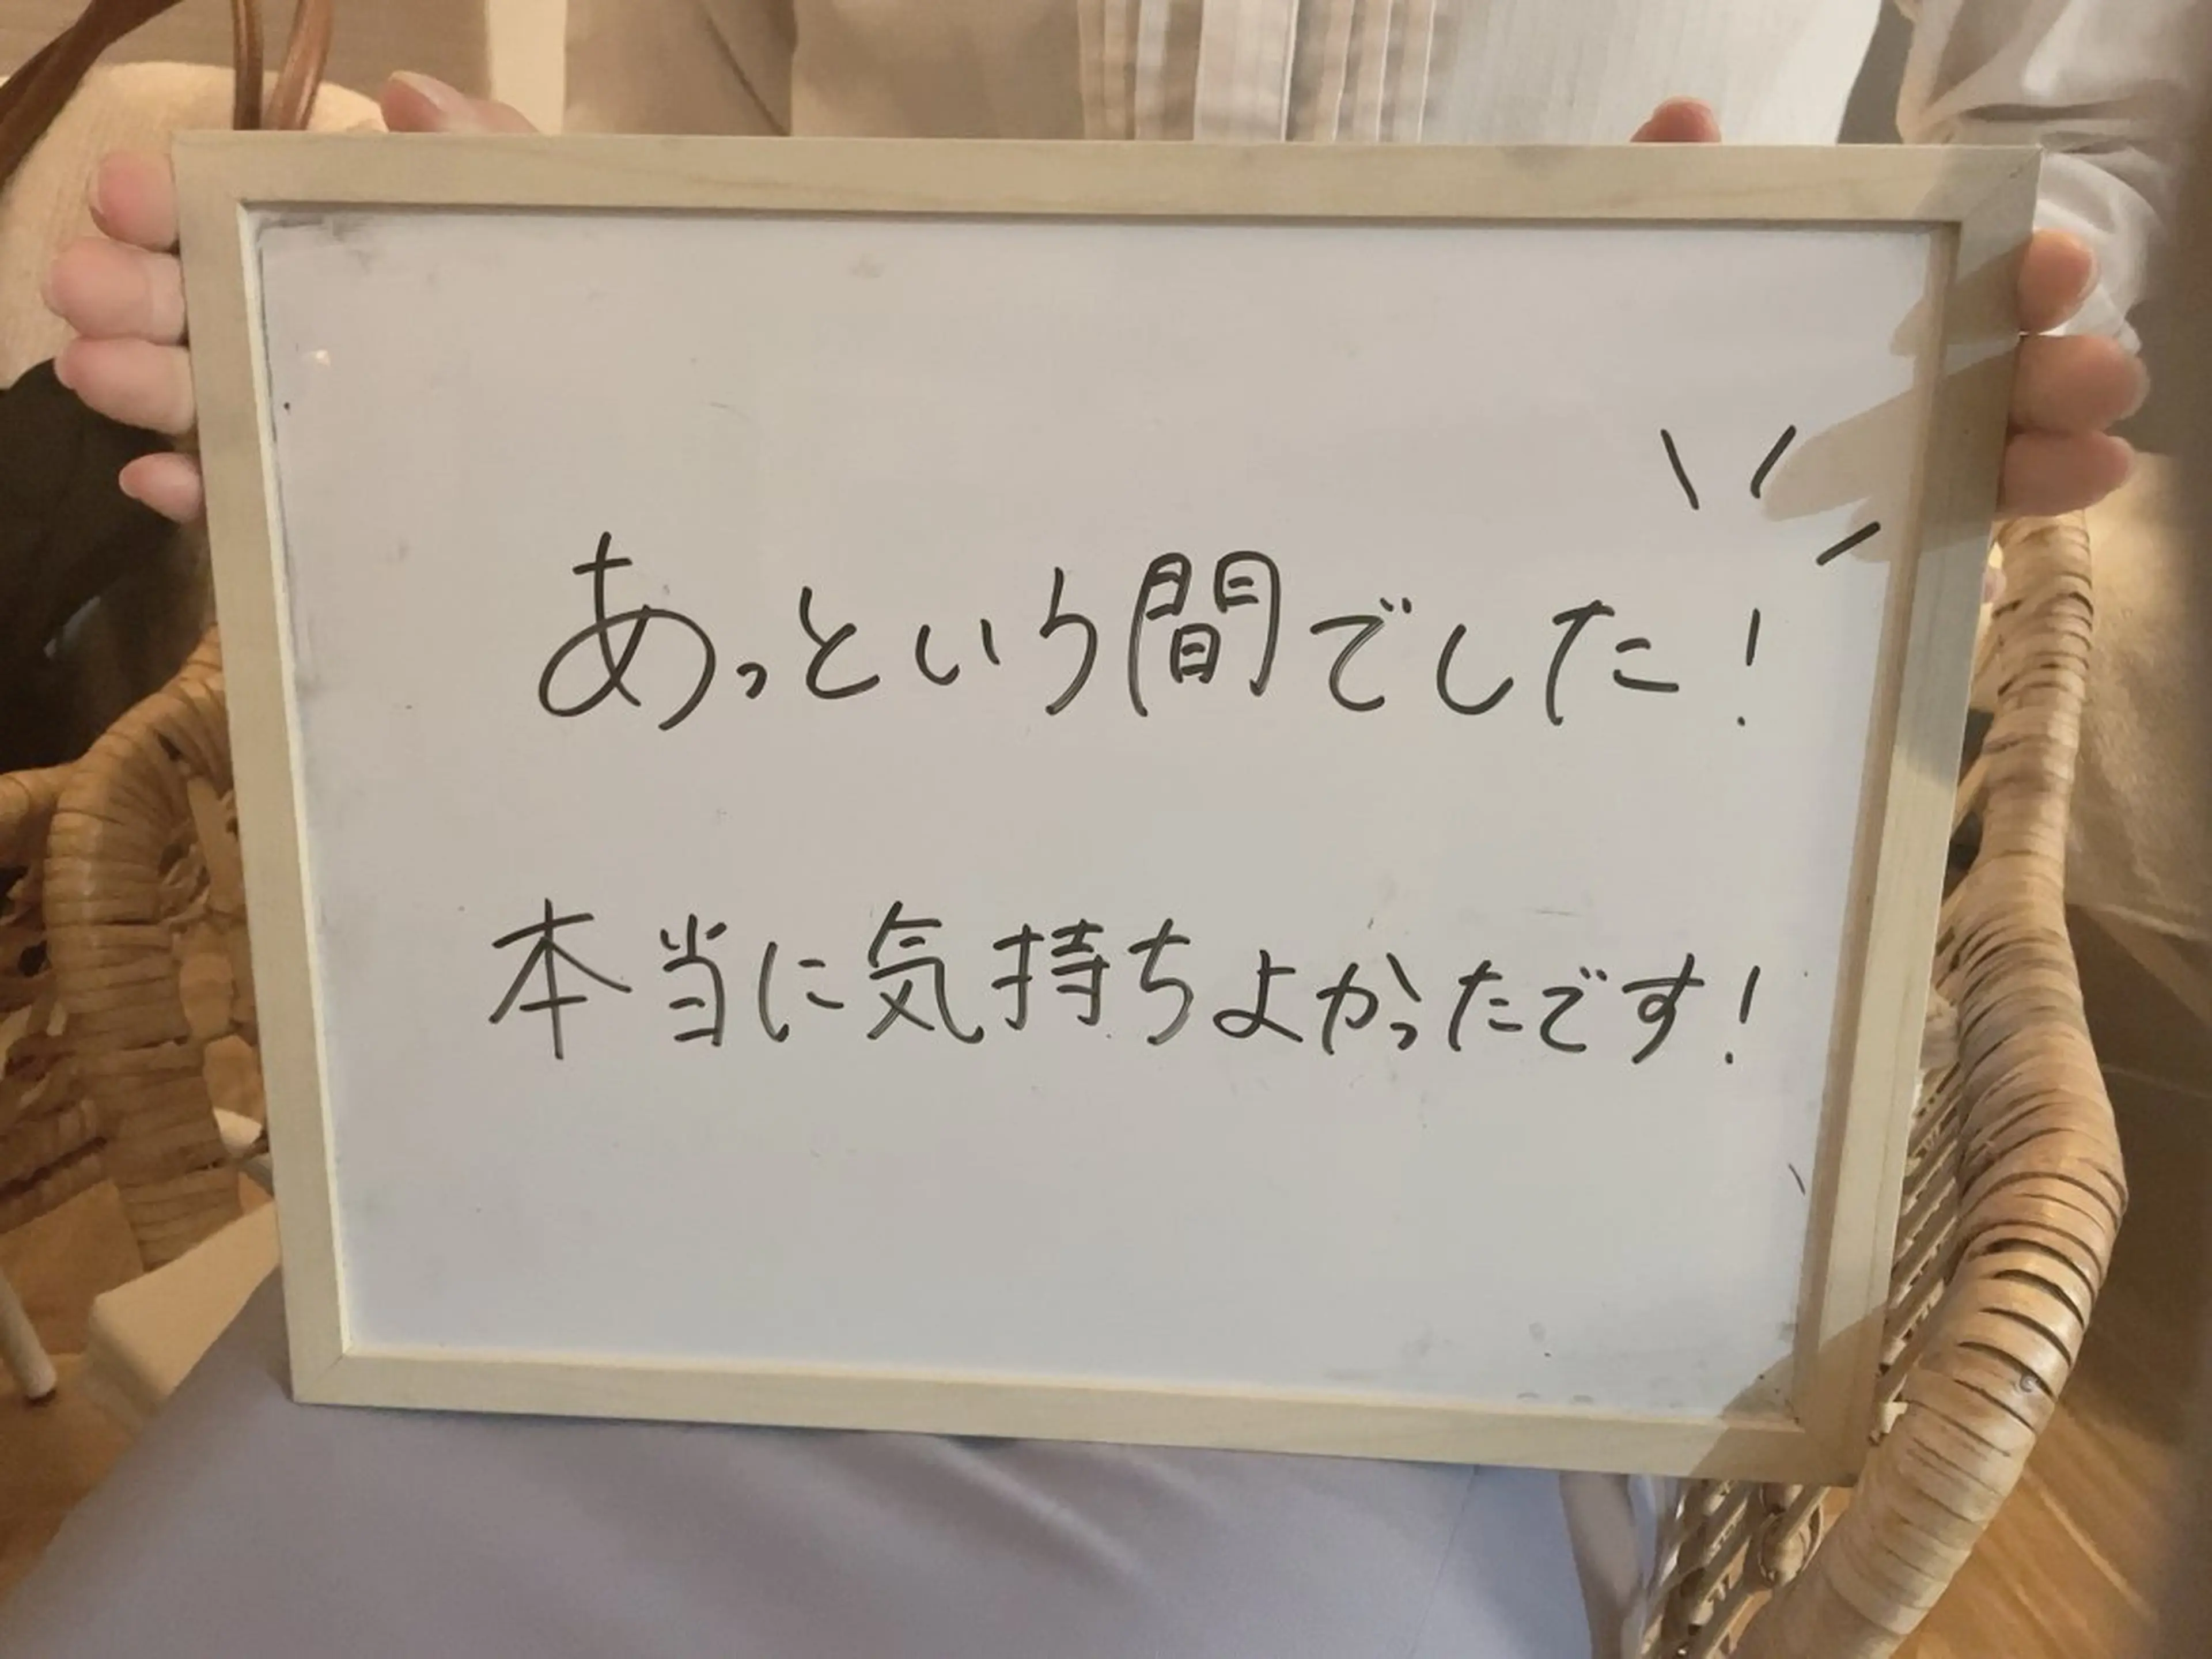 あっという間でした!
本当に気持ちよかったです!